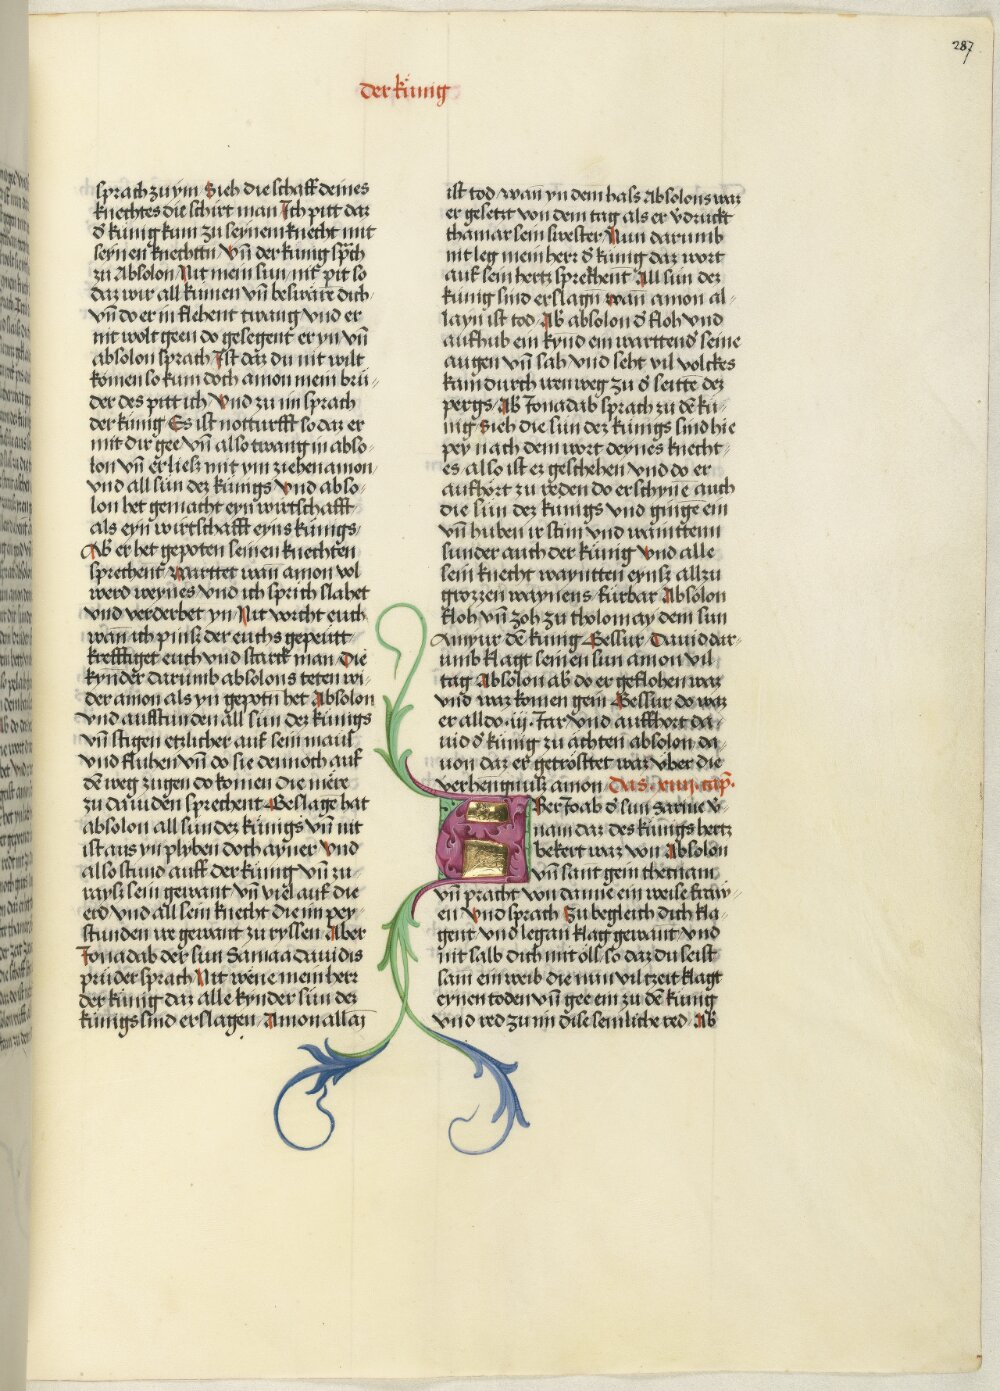 287
der künig
sprach zu ym Sieh die schaff deines
knechtes die schirt man Ich pitt daz
d͛ künig kum zu seynem knecht mit
seynen knechttn Vn̄ der kunig sp̄ch
zu Absolon Nit mein sun nit pit so
daz wir all kumen vn̄ beswäre dich
vn̄ do er in flehent twang vnd er
nit wolt geen do gesegent er yn vn̄
absolon sprach Ist daz du nit wilt
komen so kum doch amon mein brü⸗
der des pitt ich Vnd zu im sprach
der künig Es ist notturfft so daz er
mit dir gee vn̄ also twang in abso⸗
lon vn̄ er liesz mit ym ziehen amon
vnd all sün dez künigs vnd abso⸗
lon het gemacht eyn wirtschafft
als eyn wirtschafft eyns künigs
Ab͛ er het gepoten seinen knechten
sprechent warttet wan̄ amon vol
werd weynes vnd ich sprich slahet
vnd verderbet yn Nit vorcht euch
wan̄ ich pins der euchs gepeutt
krefftiget euch vnd starck man Die
kynder darumb absolons teten wi⸗
der amon als yn gepotn het Absolon
vnd auffstunden all sün dez künigs
vn̄ stigen etzlicher auf sein maul
vnd fluhen vn̄ do sie dennoch auf
dē weg zugen do komen die mëre
zu dauiden sprechent Geslagē hat
absolon all sun dez künigs vn̄ nit
ist aus yn plyben doch ayner Vnd
also stund auff der künig vn̄ zu⸗
rayss sein gewant vn̄ viel auf die
erd vnd all sein knecht die im pey
stunden we gewant zu ryssen Aber
Jonadab der sun Samaa dauidis
prüder sprach Nit wene mein herr
der künig daz alle kynder sün dez
künigs sind erslagen Amon allaī
ist tod wan̄ yn dem hass Absolons waz
er gesetzt von dem tag als er v͛druckt
thamar sein swester Nun darumb
nit leg mein herr d͛ künig daz wort
auf sein hertz sprechent All sün dez
künig sind erslagn̄ wan̄ amon al⸗
layn ist tod Ab͛ absolon d͛ floh vnd
aufhub ein kynd ein warttend͛ seine
augen vn̄ sah vnd seht vil volckes
kam durch wen weg zu d͛ seitte dez
pergs Ab͛ Jonadab sprach zu dē kü⸗
nig Sieh die sün dez künigs sind hie
pey nach dem wort deynes knecht⸗
es also ist ez geschehen vnd do er
aufhört zu reden do erschyne auch
die sün dez künigs vnd ginge ein
vn̄ huben ir stim vnd wainttenn
sunder auch der künig Vnd alle
sein knecht wayntten eynsz allzu
grozzen waynens fürbar Absolon
floh vn̄ zoh zu tholomay dem sun
Amyur dē künig Gessur Dauid dar⸗
umb klagt seinen sun amon vil
tag Absolon ab͛ do er geflohen waz
vnd waz komen gein Gessur do waz
er alldo .iij. Jar vnd auffhört da⸗
uid d͛ künig zu ächten absolon da⸗
uon daz er getrösttet waz vber die
verhengnusz amon Das .xiiij. cap̄.
Aber Joab d͛ sun Saruie v͛⸗
nam daz des künigs hertz
bekert waz von Absolon
vn̄ sant gein thecuam
vn̄ pracht von danne ein weise fraw⸗
en Vnd sprach Zu begleich dich kla⸗
gent vnd leg an klag gewant vnd
nit salb dich mit öll so daz du seist
sam ein weib die nun vil tzeit klagt
eynen toden vn̄ gee ein zu dē künig
vnd red zu im dise semliche red Ab͛